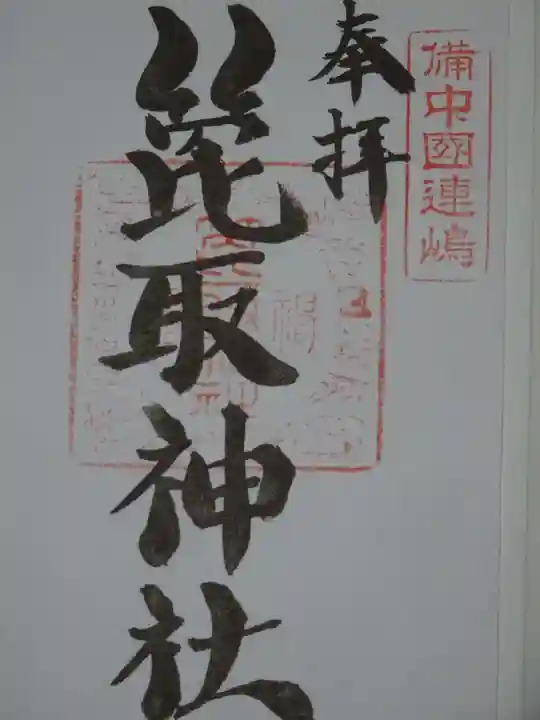 備中國連嶋
奉拝
箆取神社